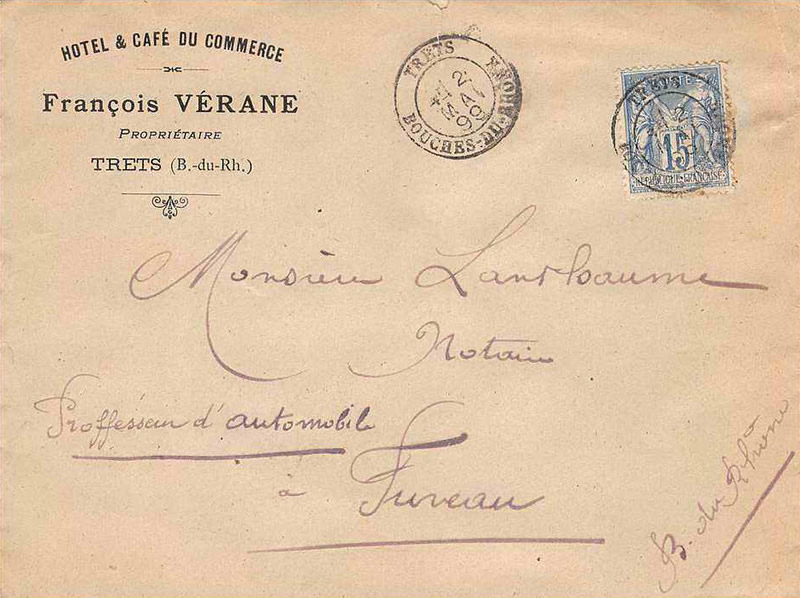 HOTEL & CAFÉ DU COMMERCE
François VÉRANE
PROPRIÉTAIRE
TRETS (B.-du-Rh.)
TRETS
2
MAI
99
BOUCHES-DU-RHONE
TRETS
2
15
REPUBLIQUE FRANÇAISE
Monsieur Lansbaume
Notaire
Proffesseur d'automobile
à Fuveau
B. du Rhône